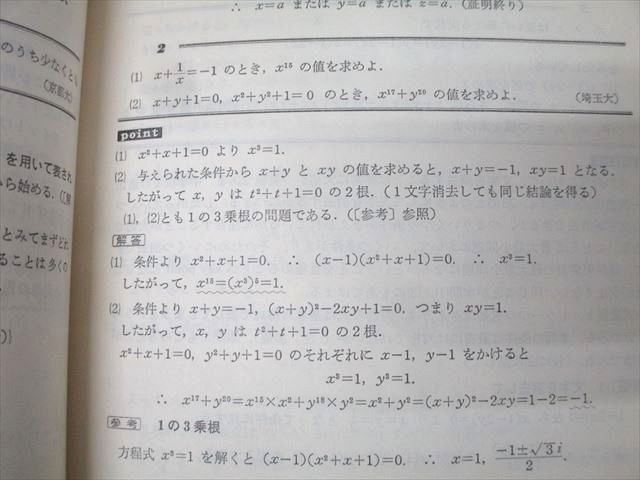 ∴ x=a または y=a または z=a. (証明終り)
2
(1) x+1/x=−1 のとき, x¹⁵ の値を求めよ.
(2) x+y+1=0, x²+y²+1=0 のとき, x¹⁷+y²⁰ の値を求めよ. (埼玉大)
point
(1) x²+x+1=0 より x³=1.
(2) 与えられた条件から x+y と xy の値を求めると, x+y=−1, xy=1 となる.
したがって x, y は t²+t+1=0 の2根. (1文字消去しても同じ結論を得る)
(1), (2)とも1の3乗根の問題である. ([参考] 参照)
解答
(1) 条件より x²+x+1=0. ∴ (x−1)(x²+x+1)=0. ∴ x³=1.
したがって, x¹⁵=(x³)⁵=1.
(2) 条件より x+y=−1, (x+y)²−2xy+1=0. つまり xy=1.
したがって, x, y は t²+t+1=0 の2根.
x²+x+1=0, y²+y+1=0 のそれぞれに x−1, y−1 をかけると
x³=1, y³=1.
∴ x¹⁷+y²⁰=x¹⁵×x²+y¹⁸×y²=x²+y²=(x+y)²−2xy=1−2=−1.
参考 1の3乗根
方程式 x³=1 を解くと (x−1)(x²+x+1)=0. ∴ x=1, (−1±√3 i)/2.
のうち少なくとも
(京都大)
を用いて表され
ら始める.
とみてまずどれ
ることは多くの